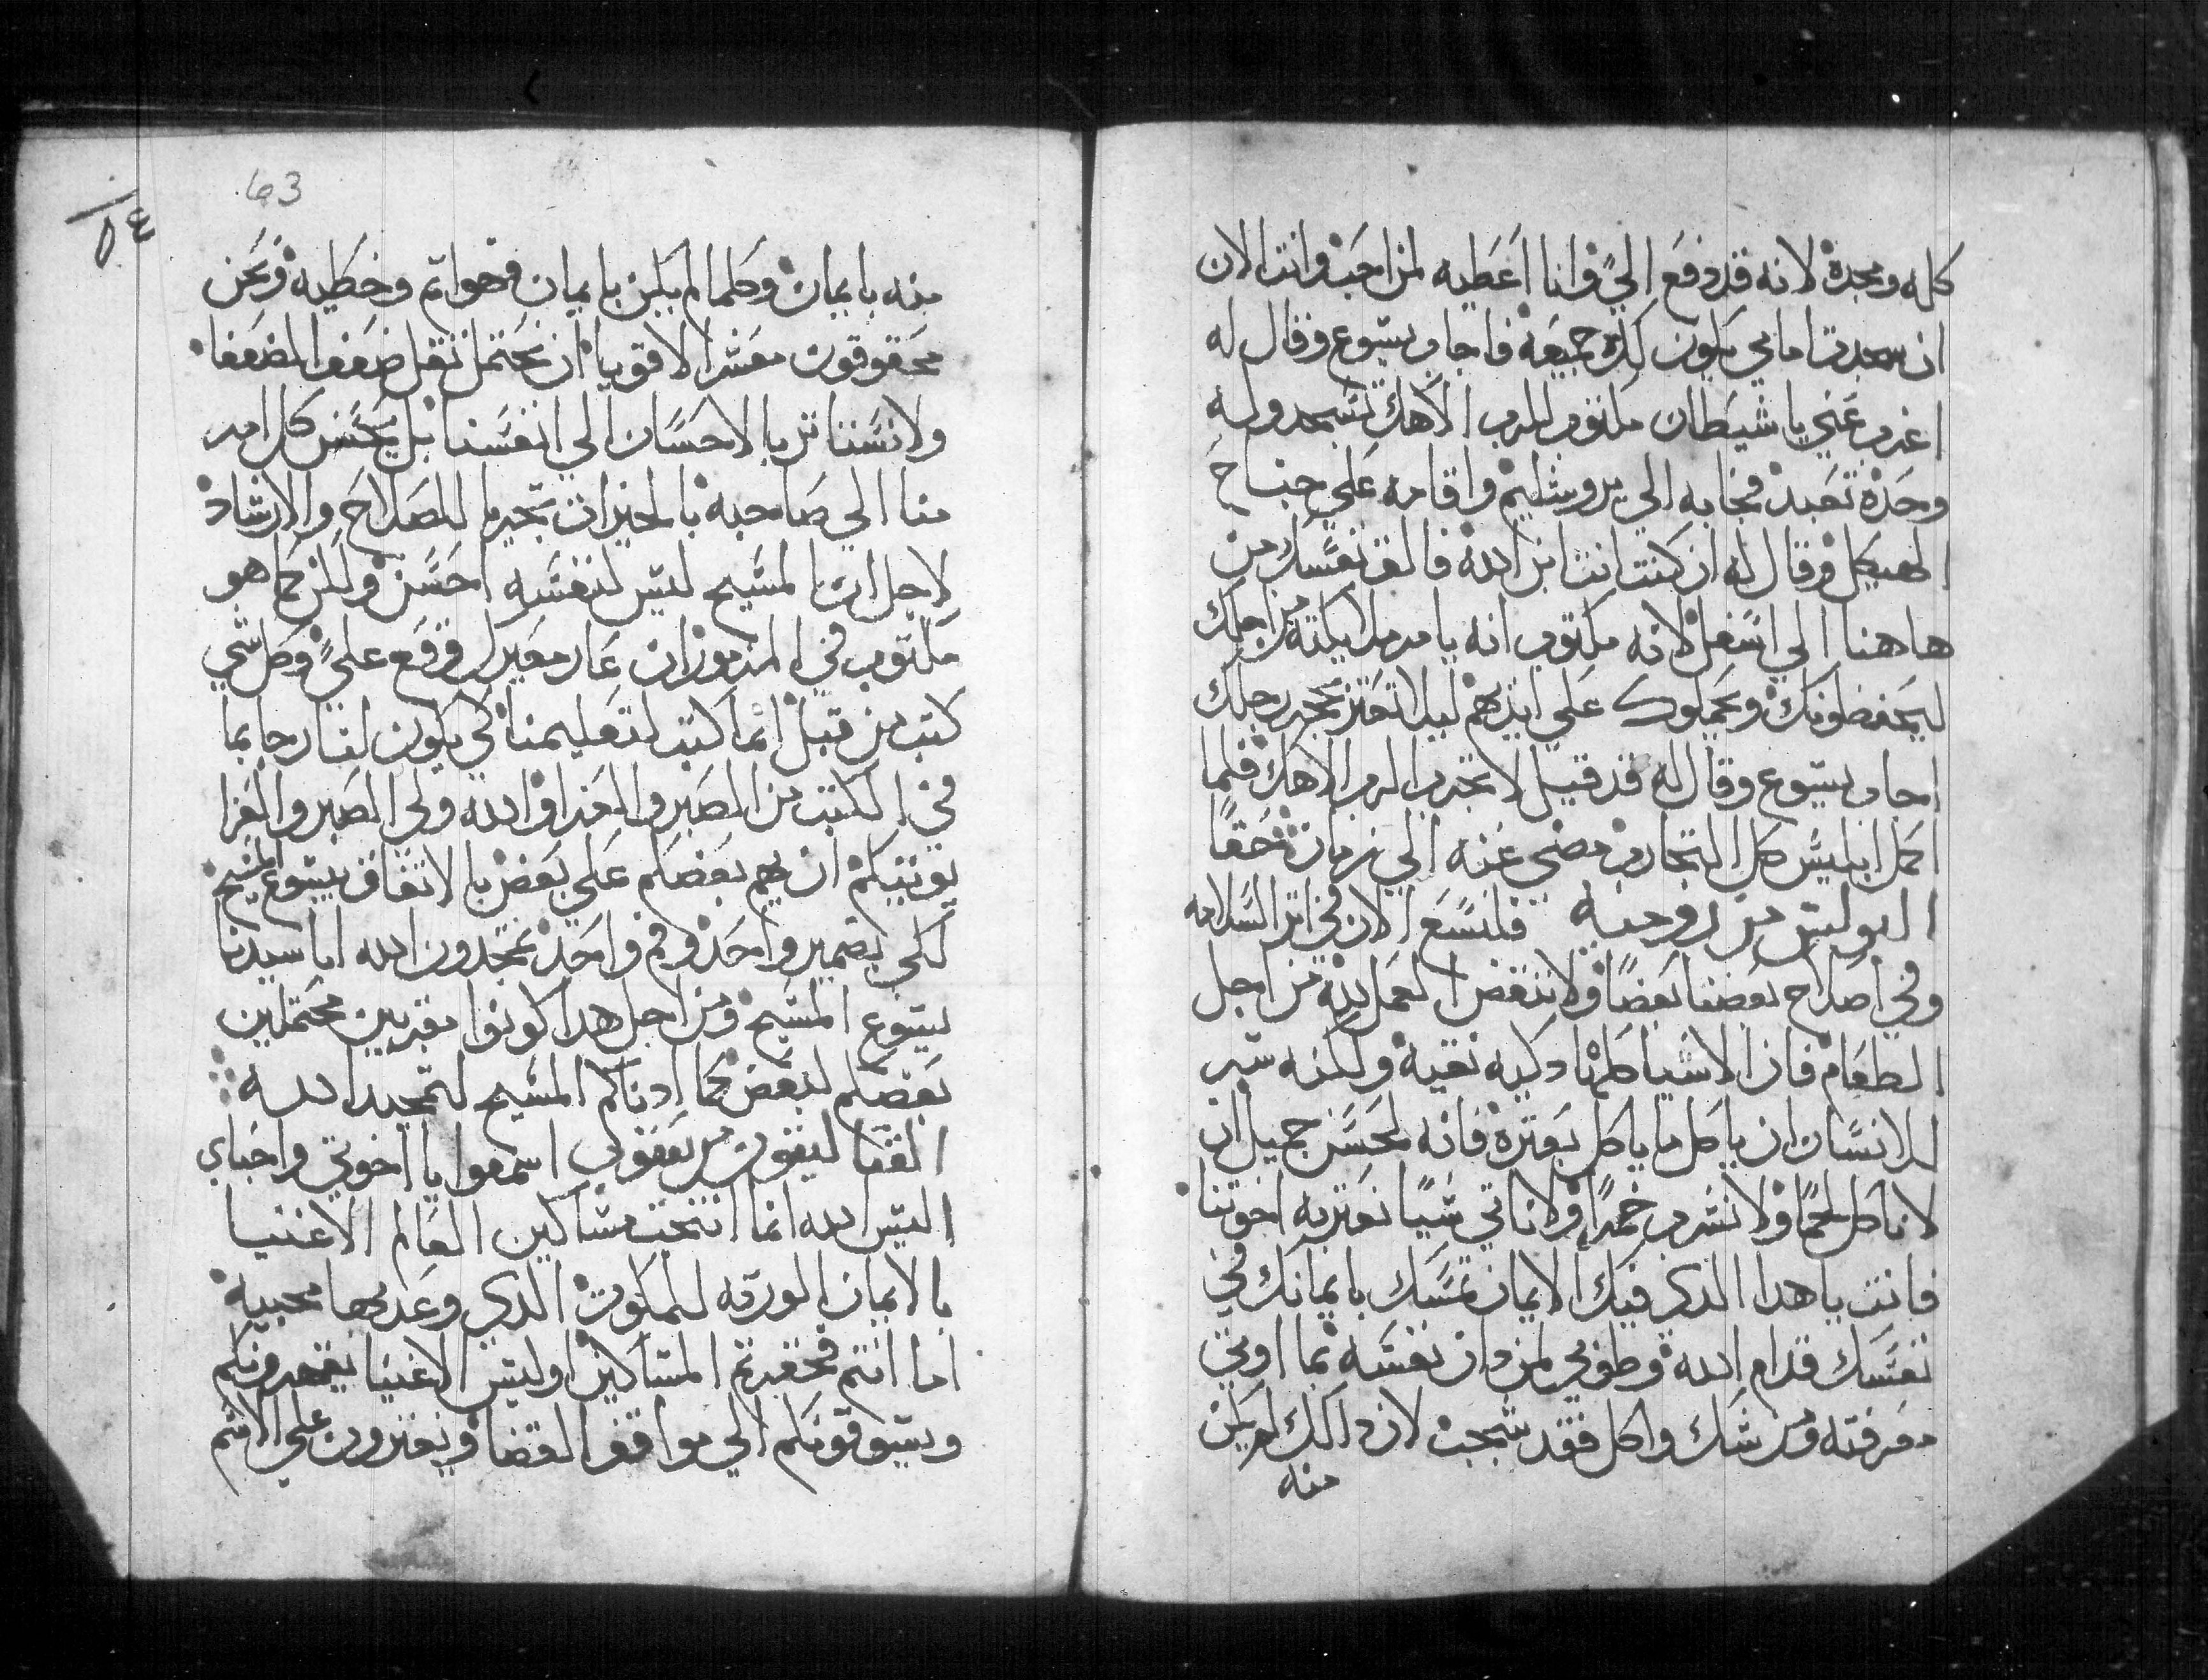 كله ومجده لانه قد دفع الي وانا اعطيه لمن احب وانت الان
ان سجدت امامي يكون لك جميعه فاجاب يسوع وقال له
اغرب عني يا شيطان مكتوب للرب الاهك تسجد وله
وحده تعبد فجا به الي يروشليم واقامه علي جناح
الهيكل وقال له ان كنت انت ابن الله فالق نفسك من
هاهنا الي اسفل لانه مكتوب انه يامر ملايكته من اجلك
ليحفظونك ويحملوك علي ايديهم ليلا تعتر بحجر رجلك
اجاب يسوع وقال له قد قيل لا تجرب الرب الاهك فلما
اكمل ابليس كل التجارب مضي عنه الي زمان حقا
البولس من روميه فلنسع الان في اتر السلامه
وفي اصلاح بعضنا بعضا ولا ننقض اعمل الله من اجل
الطعام فان الاشيا كلها دكيه نقيه ولكنه شر
للانسان ان ياكل ما ياكل بعتره فانه لحسن جميل ان
لا ناكل لحما ولا نشرب خمرا ولا ناتي شيا نعتر به اخوتنا
فانت يا هدا الدي فيك الايمان تمسك بايمانك في
نفسك قدام الله وطوبي لمن دان نفسه بما اوتي
معرفته ومن شك واكل فقد شجب لان دالك لم يكن
منه
63
٥٤
منه بايمان وكلما لم يكن بايمان فهو اتم وخطيه ونحن
محقوقون معشر الاقويا ان نحتمل تقل ضعف الضعفا
ولا نستاتر بالاحسان الي انفسنا بل يحسن كل امر
منا الي صاحبه بالخيرات تحريا للصلاح والارشاد
لاجل ان المسيح ليس لنفسه احسن ولكن كما هو
مكتوب في المزمور ان عار معيريك وقع علي وكل شي
كتب من قبل انما كتب لتعليمنا كي يكون لنا رجا بما
في الكتب من الصبر والعزا والله ولي الصبر والعزا
يوتيكم ان يهم بعضكم علي بعض بالاتفاق بيسوع المسيح
لكي بضمير واحد وفم واحد تمجدون الله ابا سيدنا
يسوع المسيح ومن اجل هدا كونوا مقربين محتملين
بعضكم لبعض كما ادناكم المسيح لتمجيد الله
القتاليقون من يعقوب اسمعوا يا اخوتي واحباي
اليس الله انما انتخب مساكين العالم الاغنيا
بالايمان الورته للملكوت الدي وعد بها محبيه
اما انتم فحقرتم المساكين اوليس الاغنيا يقهرونكم
ويسوقونكم الي مواقف القضا ويفترون علي الاسم